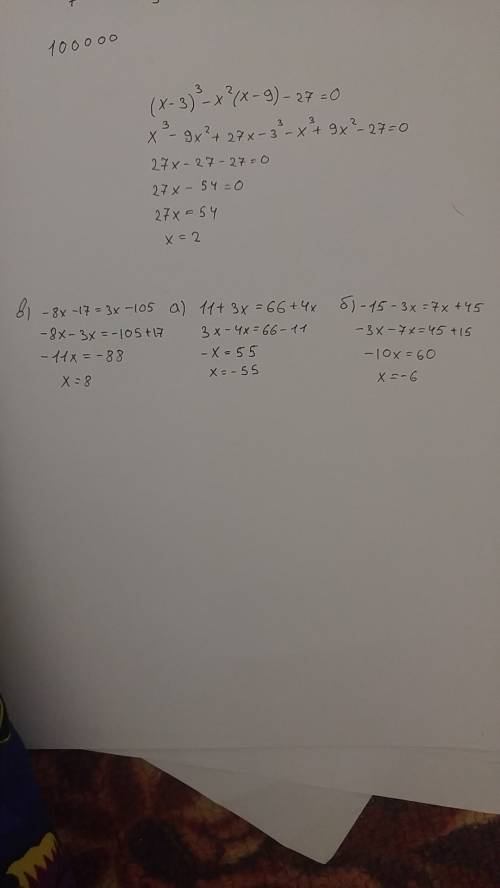 100000
(x-3)³-x²(x-9)-27=0
x³-9x²+27x-3³-x³+9x²-27=0
27x-27-27=0
27x-54=0
27x=54
x=2
в) -8x-17=3x-105
-8x-3x=-105+17
-11x=-88
x=8
а) 11+3x=66+4x
3x-4x=66-11
-x=55
x=-55
б) -15-3x=7x+45
-3x-7x=45+15
-10x=60
x=-6